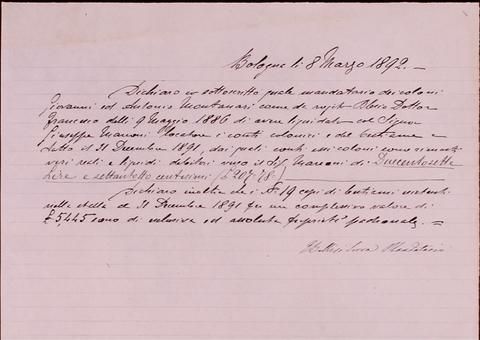 Bologna li 8 Marzo 1892.
Dichiaro io sottoscritto quale mandatario dei coloni
Giovanni ed Antonio Montanari come da rogito Dottor
Francesco delli 9 Maggio 1886 di avere liquidato col Signor
Giuseppe Marconi locatore i conti colonici e del bestiame a
tutto il 31 Dicembre 1891, dai quali conti essi coloni sono rimasti
veri reali e liquidi debitori verso il Sig Marconi di Duecentosette
Lire e settantotto centesimi (£ 207.78)
Dichiaro inoltre che i N° 19 capi di bestiami esistenti
nella stalla al 31 Dicembre 1891 per un complessivo valore di
£ 5,445 sono di esclusiva ed assoluta proprietà padronale.